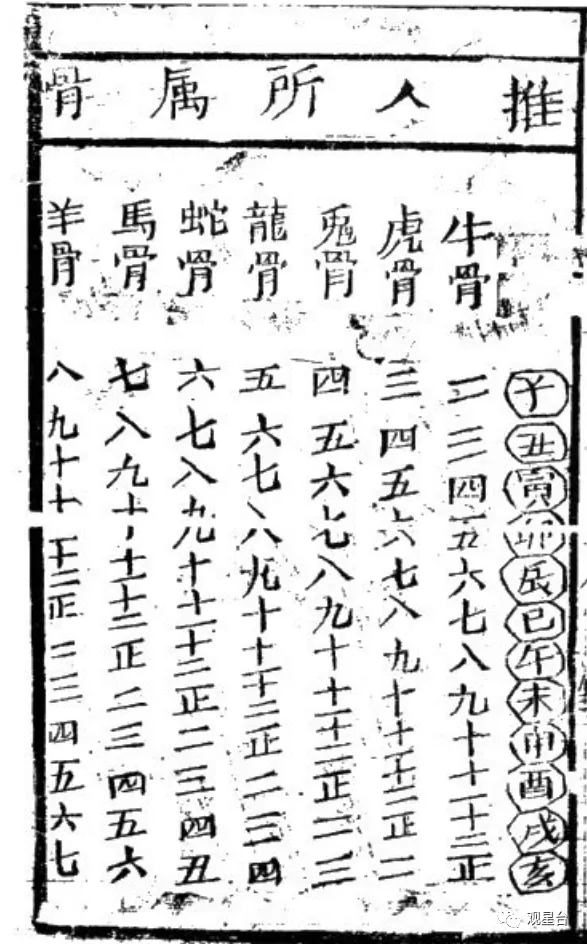 推人所属骨
子丑寅卯辰巳午未申酉戌亥
牛骨 二三四五六七八九十十一十二正
虎骨 三四五六七八九十十一十二正二
兎骨 四五六七八九十十一十二正二三
龍骨 五六七八九十十一十二正二三四
蛇骨 六七八九十十一十二正二三四五
馬骨 七八九十十一十二正二三四五六
羊骨 八九十十一十二正二三四五六七
观星台